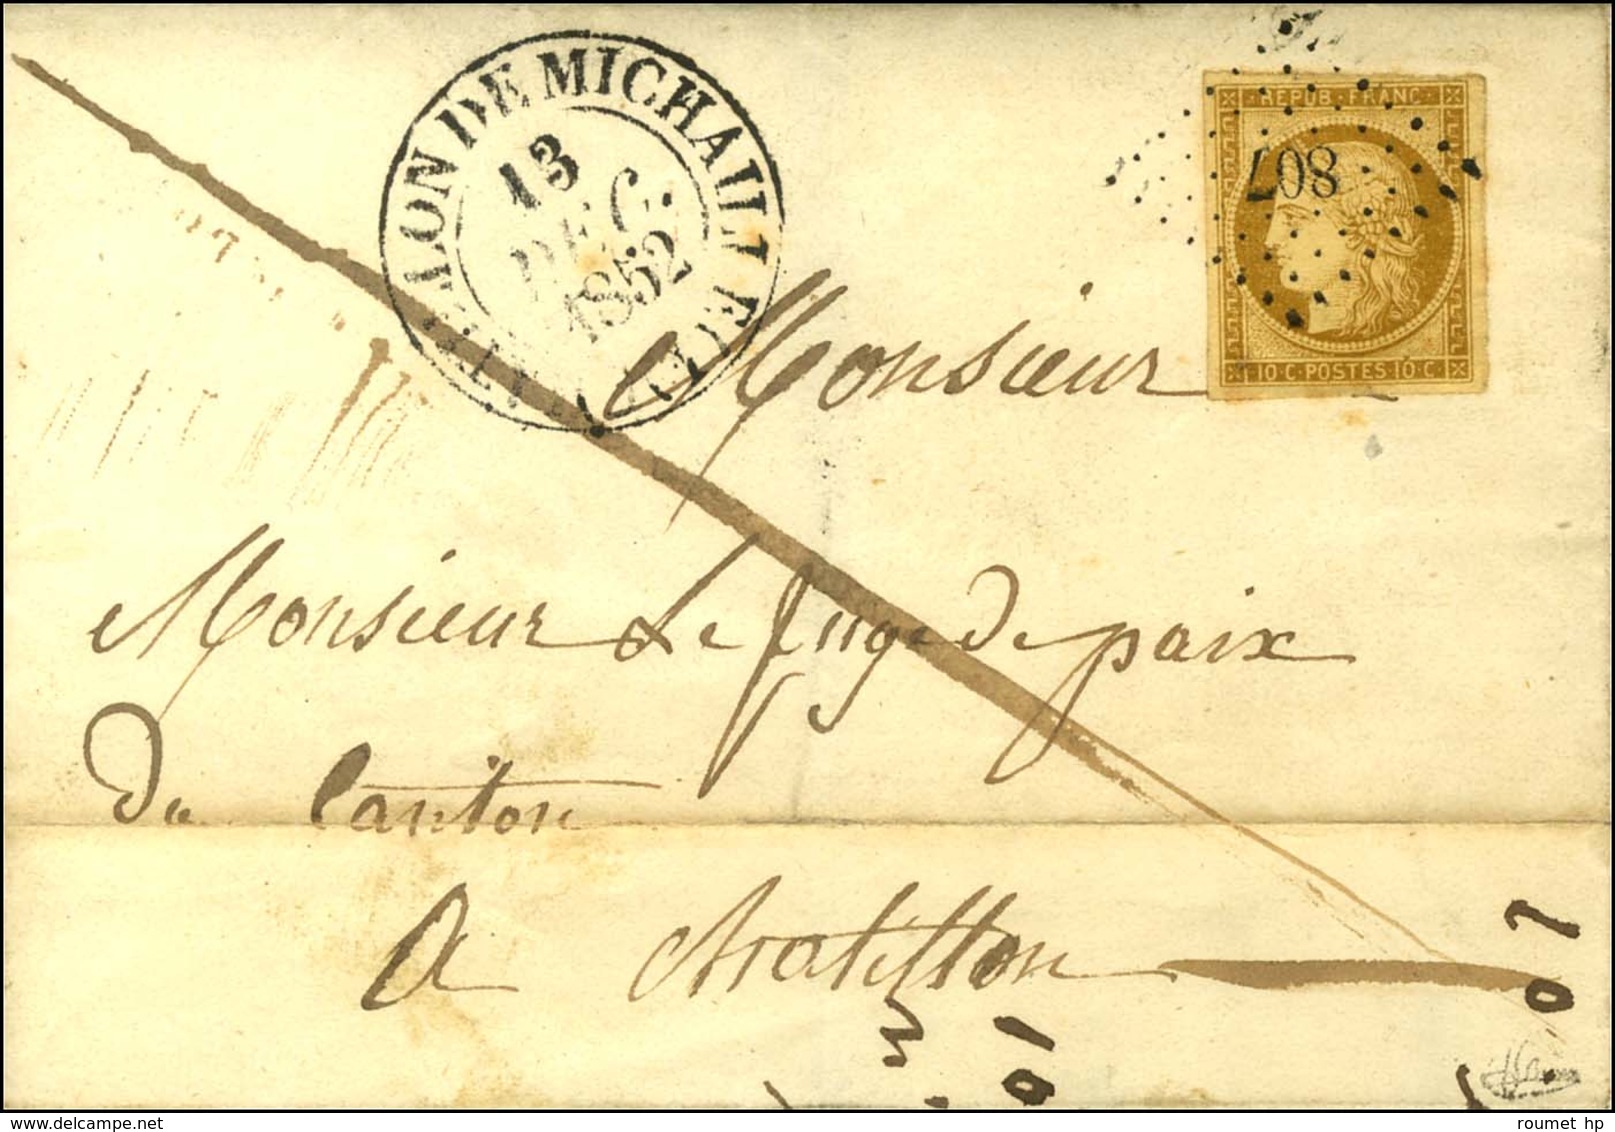 LON DE MICHAILLE (1)
13
DEC.
1852
REPUB. FRANC.
807
10.C. POSTES 10.C.
Monsieur
Monsieur Le Juge de paix
du Canton
A Chatillon
10
10
roumet hp